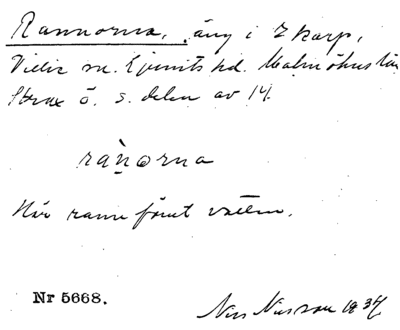 Rannorna, äng i Zkarp,
Villie sn. Ljunits hd. Malmöhus län
Strax ö. s. delen av 14.
ràṇorna
Här rann förut vatten.
Nr 5668.
Nils Nilsson 1934